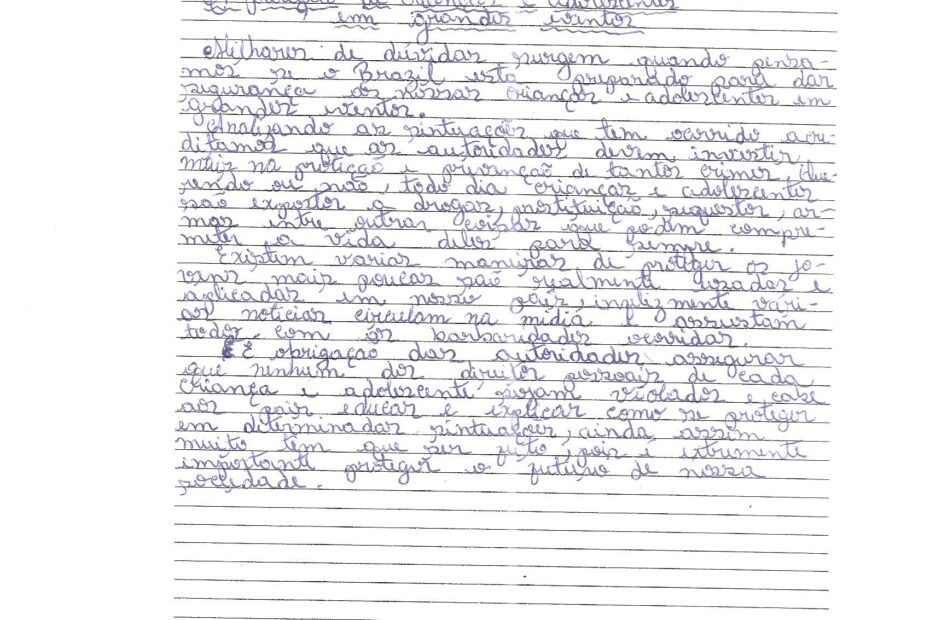 A proteção de crianças e adolescentes
em grandes eventos
Milhares de dúvidas surgem quando pensa-
mos se o Brazil está preparado para dar
segurança as nossas crianças e adolescentes em
grandes eventos.
Analizando as sintuações que tem ocorrido acre-
ditamos que as autoridades devem investir
mais na proteção e prevenção de tantos crimes. Que-
rendo ou não, todo dia crianças e adolescentes
são expostos a drogas, prostituição, sequestos, ar-
mas entre outras coisas que podem compro-
meter a vida deles para sempre.
Existem varias maneiras de proteger os jo-
vens mais poucas são realmente uzadas e
aplicadas em nosso país, infelizmente vári-
as noticias circulam na mídia e assustam
todos com as barbaridades ocorridas.
É obrigação das autoridades assegurar
que nenhum dos direitos pessoais de cada
criança e adolescente sejam violados e cabe
aos pais educar e explicar como se proteger
em determinadas sintuações, ainda assim
muito tem que ser feito, pois é extremente
importante proteger o futuro de nossa
sociedade.